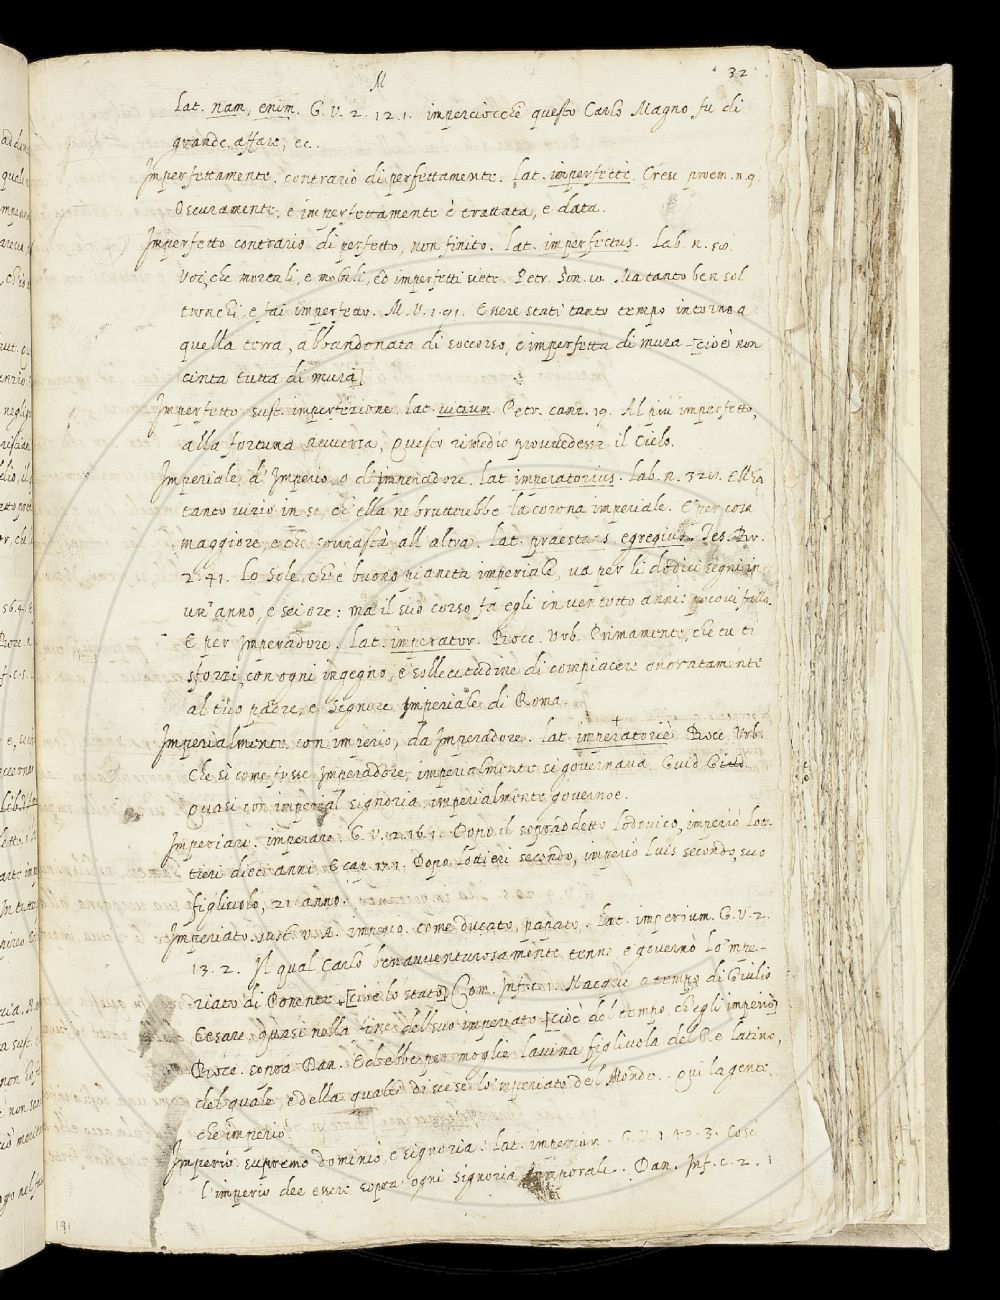 M
32
lat. nam, enim. G. V. 2. 12. 1. imperciocchè questo Carlo Magno fu di
grande affare, ec.
Imperfettamente. contrario di perfettamente. lat. imperfectè. Cresc. proem. n. 9
Oscuramente, e imperfettamente è trattata, e data.
Imperfetto contrario di perfetto, non finito. lat. imperfectus. Lab. n.
Voi, che mortali, e mobili, ed imperfetti siete. Petr. Son. Ma tanto ben sol
tronchi, e fai imperfetto. M. V. 1. 91. Essere stati tanto tempo intorno a
quella terra, abbandonata di soccorso, e imperfetta di mura [cioè non
cinta tutta di mura]
Imperfetto sust. imperfezione. lat. vitium. Petr. canz. 19. Al più imperfetto,
alla fortuna avversa, Questo rimedio provvedesse il Cielo.
Imperiale, d'Imperio, o d'imperadore. lat. imperatorius. Lab. n. Ell'ha
tanto vizio in se, ch'ella ne bruttrebbe la corona imperiale. E per cosa
maggiore, e che sovrastà all'altra. lat. praestans, egregius. Tes. Br.
2. 41. Lo Sole, ch'è buono pianeta imperiale, va per li dodici segni in
un'anno, e sei ore: ma il suo corso fa egli in ventotto anni: poco vi falla.
E per Imperadore. lat. imperator. Bocc. Urb. Primamente, che tu ti
sforzi, con ogni ingegno, e sollecitudine di compiacere onoratamente
al tuo padre, e Signore Imperiale di Roma.
Imperialmente con imperio, da Imperadore. lat. imperatoriè. Bocc. Urb.
Che sì come fusse Imperadore, imperialmente si governava. Guid. Giud.
Quasi con imperial signoria imperialmente governoe.
Imperiare. imperare. G. V. 2. 16. 1. Dopo il sopraddetto Lodovico, imperiò Lot-
tieri dieci anni. E cap. Dopo Lottieri secondo, imperiò Luis secondo, suo
figliuolo, 21 anno.
Imperiato. sust. V. A. imperio. come ducato, papato. Lat. imperium. G. V. 2.
13. 2. Il qual Carlo benavventurosamente tenne e governò lo 'mpe-
riato di Ponente [cioè lo stato] Com. Inf. Nacque a tempo di Giulio
Cesare, quasi nella fine del suo imperiato [cioè del tempo, ch'egli imperiò]
Bocc. sopra Dan. Ed ebbe per moglie Lavina figliuola del Re Latino,
del quale, e della quale discese lo 'mperiato del Mondo. Qui la gente,
che imperiò.
Imperio. supremo dominio, e signoria. lat. imperium. G. V. 1. 40. 3. Così
l'imperio dee essere sopra ogni signoria temporale. Dan. Inf. c. 2.
191